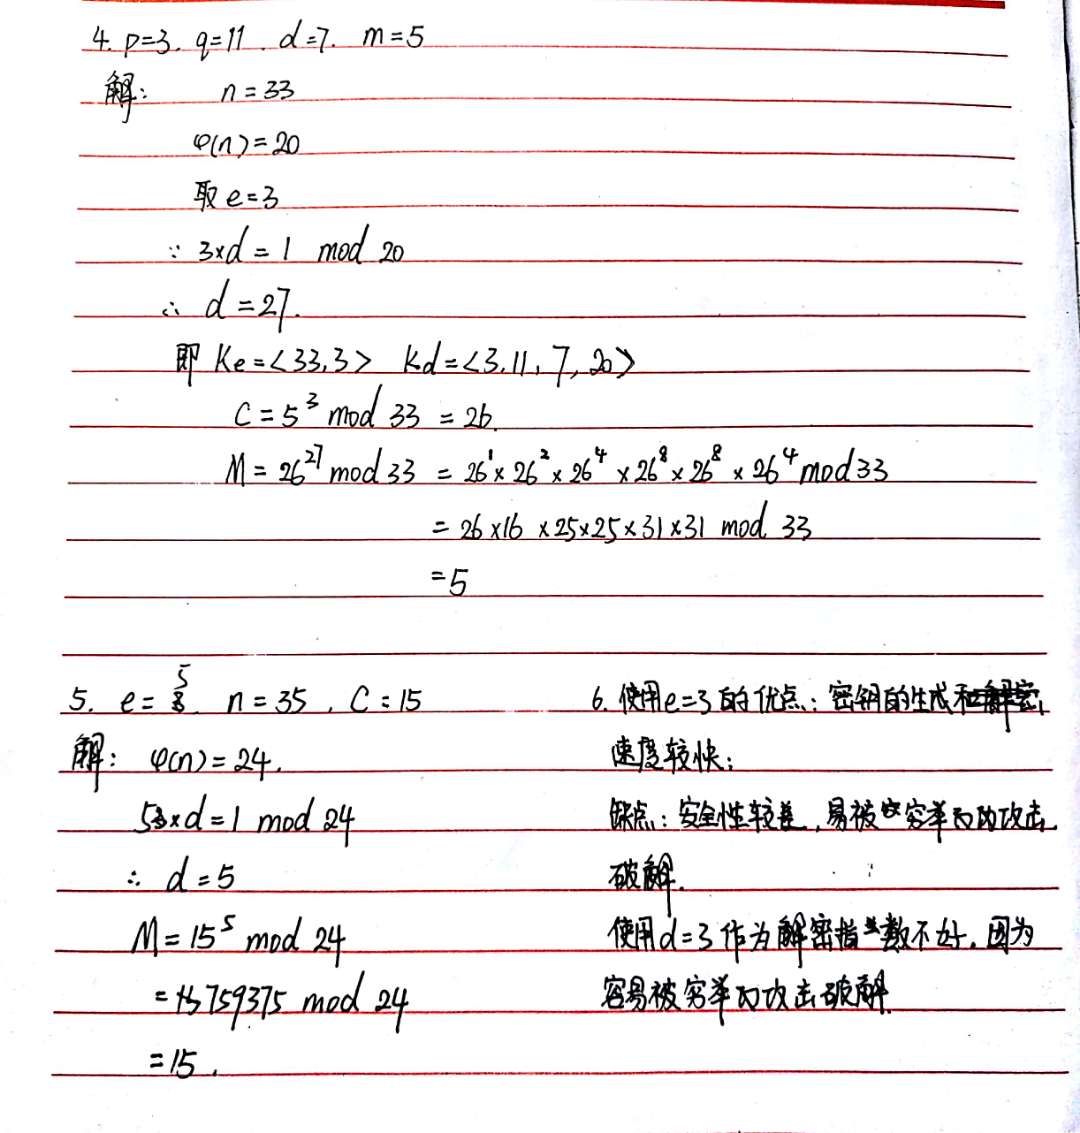 4. p=3. q=11. d=7. m=5
解: n=33
φ(n)=20
取 e=3
∵ 3×d=1 mod 20
∴ d=27.
即 Ke=<33,3> Kd=<3,11,7,20>
C=5³ mod 33 = 26.
M=26²⁷ mod 33 = 26¹×26²×26⁴×26⁸×26⁸×26⁴ mod 33
= 26×16×25×25×31×31 mod 33
=5
5. e=5. n=35, C=15
解: φ(n)=24.
5×d=1 mod 24
∴ d=5
M=15⁵ mod 24
=759375 mod 24
=15.
6. 使用e=3的优点: 密钥的生成和
速度较快;
缺点: 安全性较差, 易被穷举攻击
破解.
使用d=3作为解密指数不好. 因为
容易被穷举攻击破解.